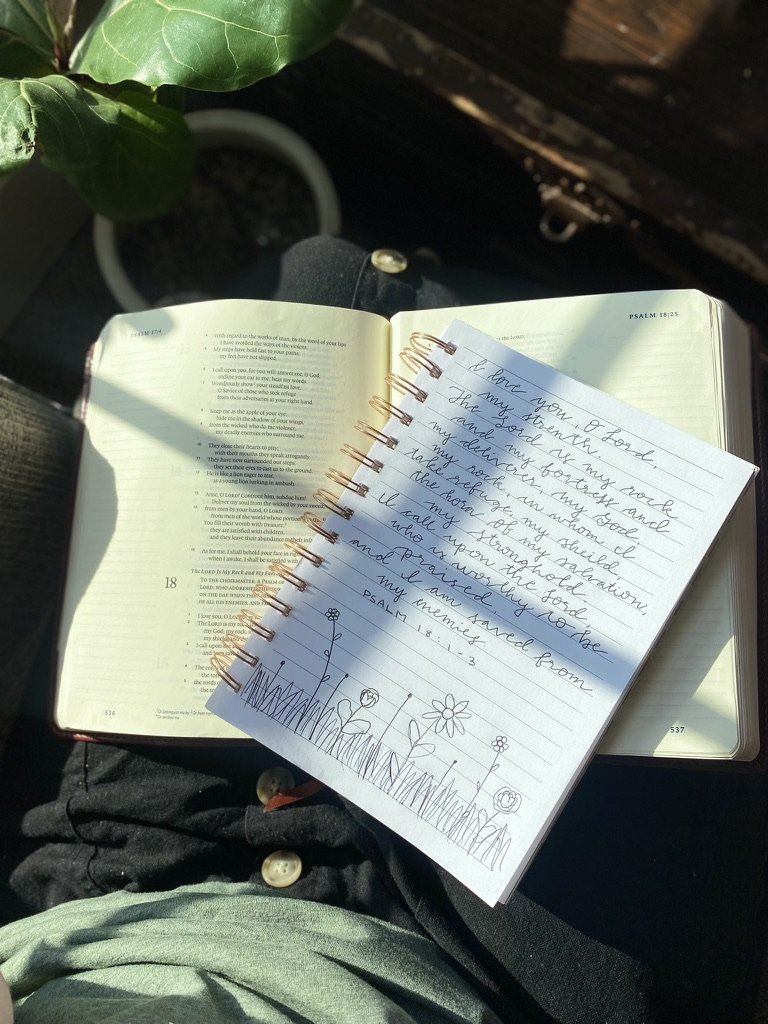 PSALM 17:4
4 With regard to the works of man, by the word of your lips
I have avoided the ways of the violent.
5 My steps have held fast to your paths;
my feet have not slipped.
6 I call upon you, for you will answer me, O God;
incline your ear to me; hear my words.
7 Wondrously show your steadfast love,
O Savior of those who seek refuge
from their adversaries at your right hand.
8 Keep me as the apple of your eye;
hide me in the shadow of your wings,
9 from the wicked who do me violence,
my deadly enemies who surround me.
10 They close their hearts to pity;
with their mouths they speak arrogantly.
11 They have now surrounded our steps;
they set their eyes to cast us to the ground.
12 He is like a lion eager to tear,
as a young lion lurking in ambush.
13 Arise, O LORD! Confront him, subdue him!
Deliver my soul from the wicked by your sword,
14 from men by your hand, O LORD,
from men of the world whose portion
You fill their womb with treasure;
they are satisfied with children,
and they leave their abundance to their
15 As for me, I shall behold your face in
when I awake, I shall be satisfied
The LORD Is My Rock and My
18
TO THE CHOIRMASTER. A PSALM OF
LORD, WHO ADDRESSED
ON THE DAY WHEN THE
OF ALL HIS ENEMIES, AND
1 I love you, O
2 The LORD is my
my God, my rock,
my shield
3 I call upon
and I am
4 The cords of
the
5 the cords
the
536
PSALM 18:25
the LORD;
537
I love you, O Lord,
my strenth.
The Lord is my rock
and my fortress and
my deliverer, my God,
my rock, in whom I
take refuge, my sheild
the horn of my salvation,
my stronghold.
I call upon the Lord,
who is worthy to be
praised,
and I am saved from
my enemies
PSALM 18:1-3